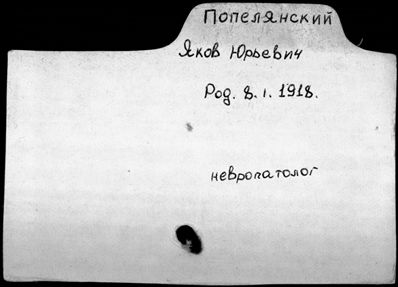 Попелянский
Яков Юрьевич
Род. 8.I.1918.
невропатолог